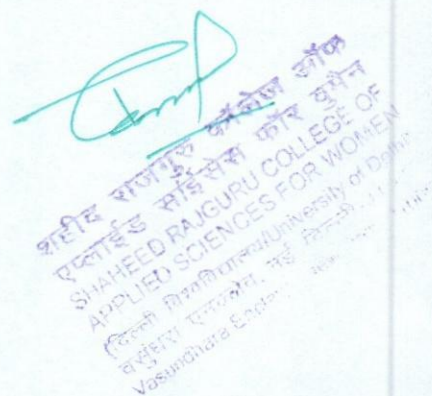 शहीद राजगुरु कॉलेज ऑफ
एप्लाईड साईंसेस फॉर वुमैन
SHAHEED RAJGURU COLLEGE OF
APPLIED SCIENCES FOR WOMEN
(दिल्ली विश्वविद्यालय/University of Delhi
वसुंधरा एनक्लेव, नई दिल्ली
Vasundhara